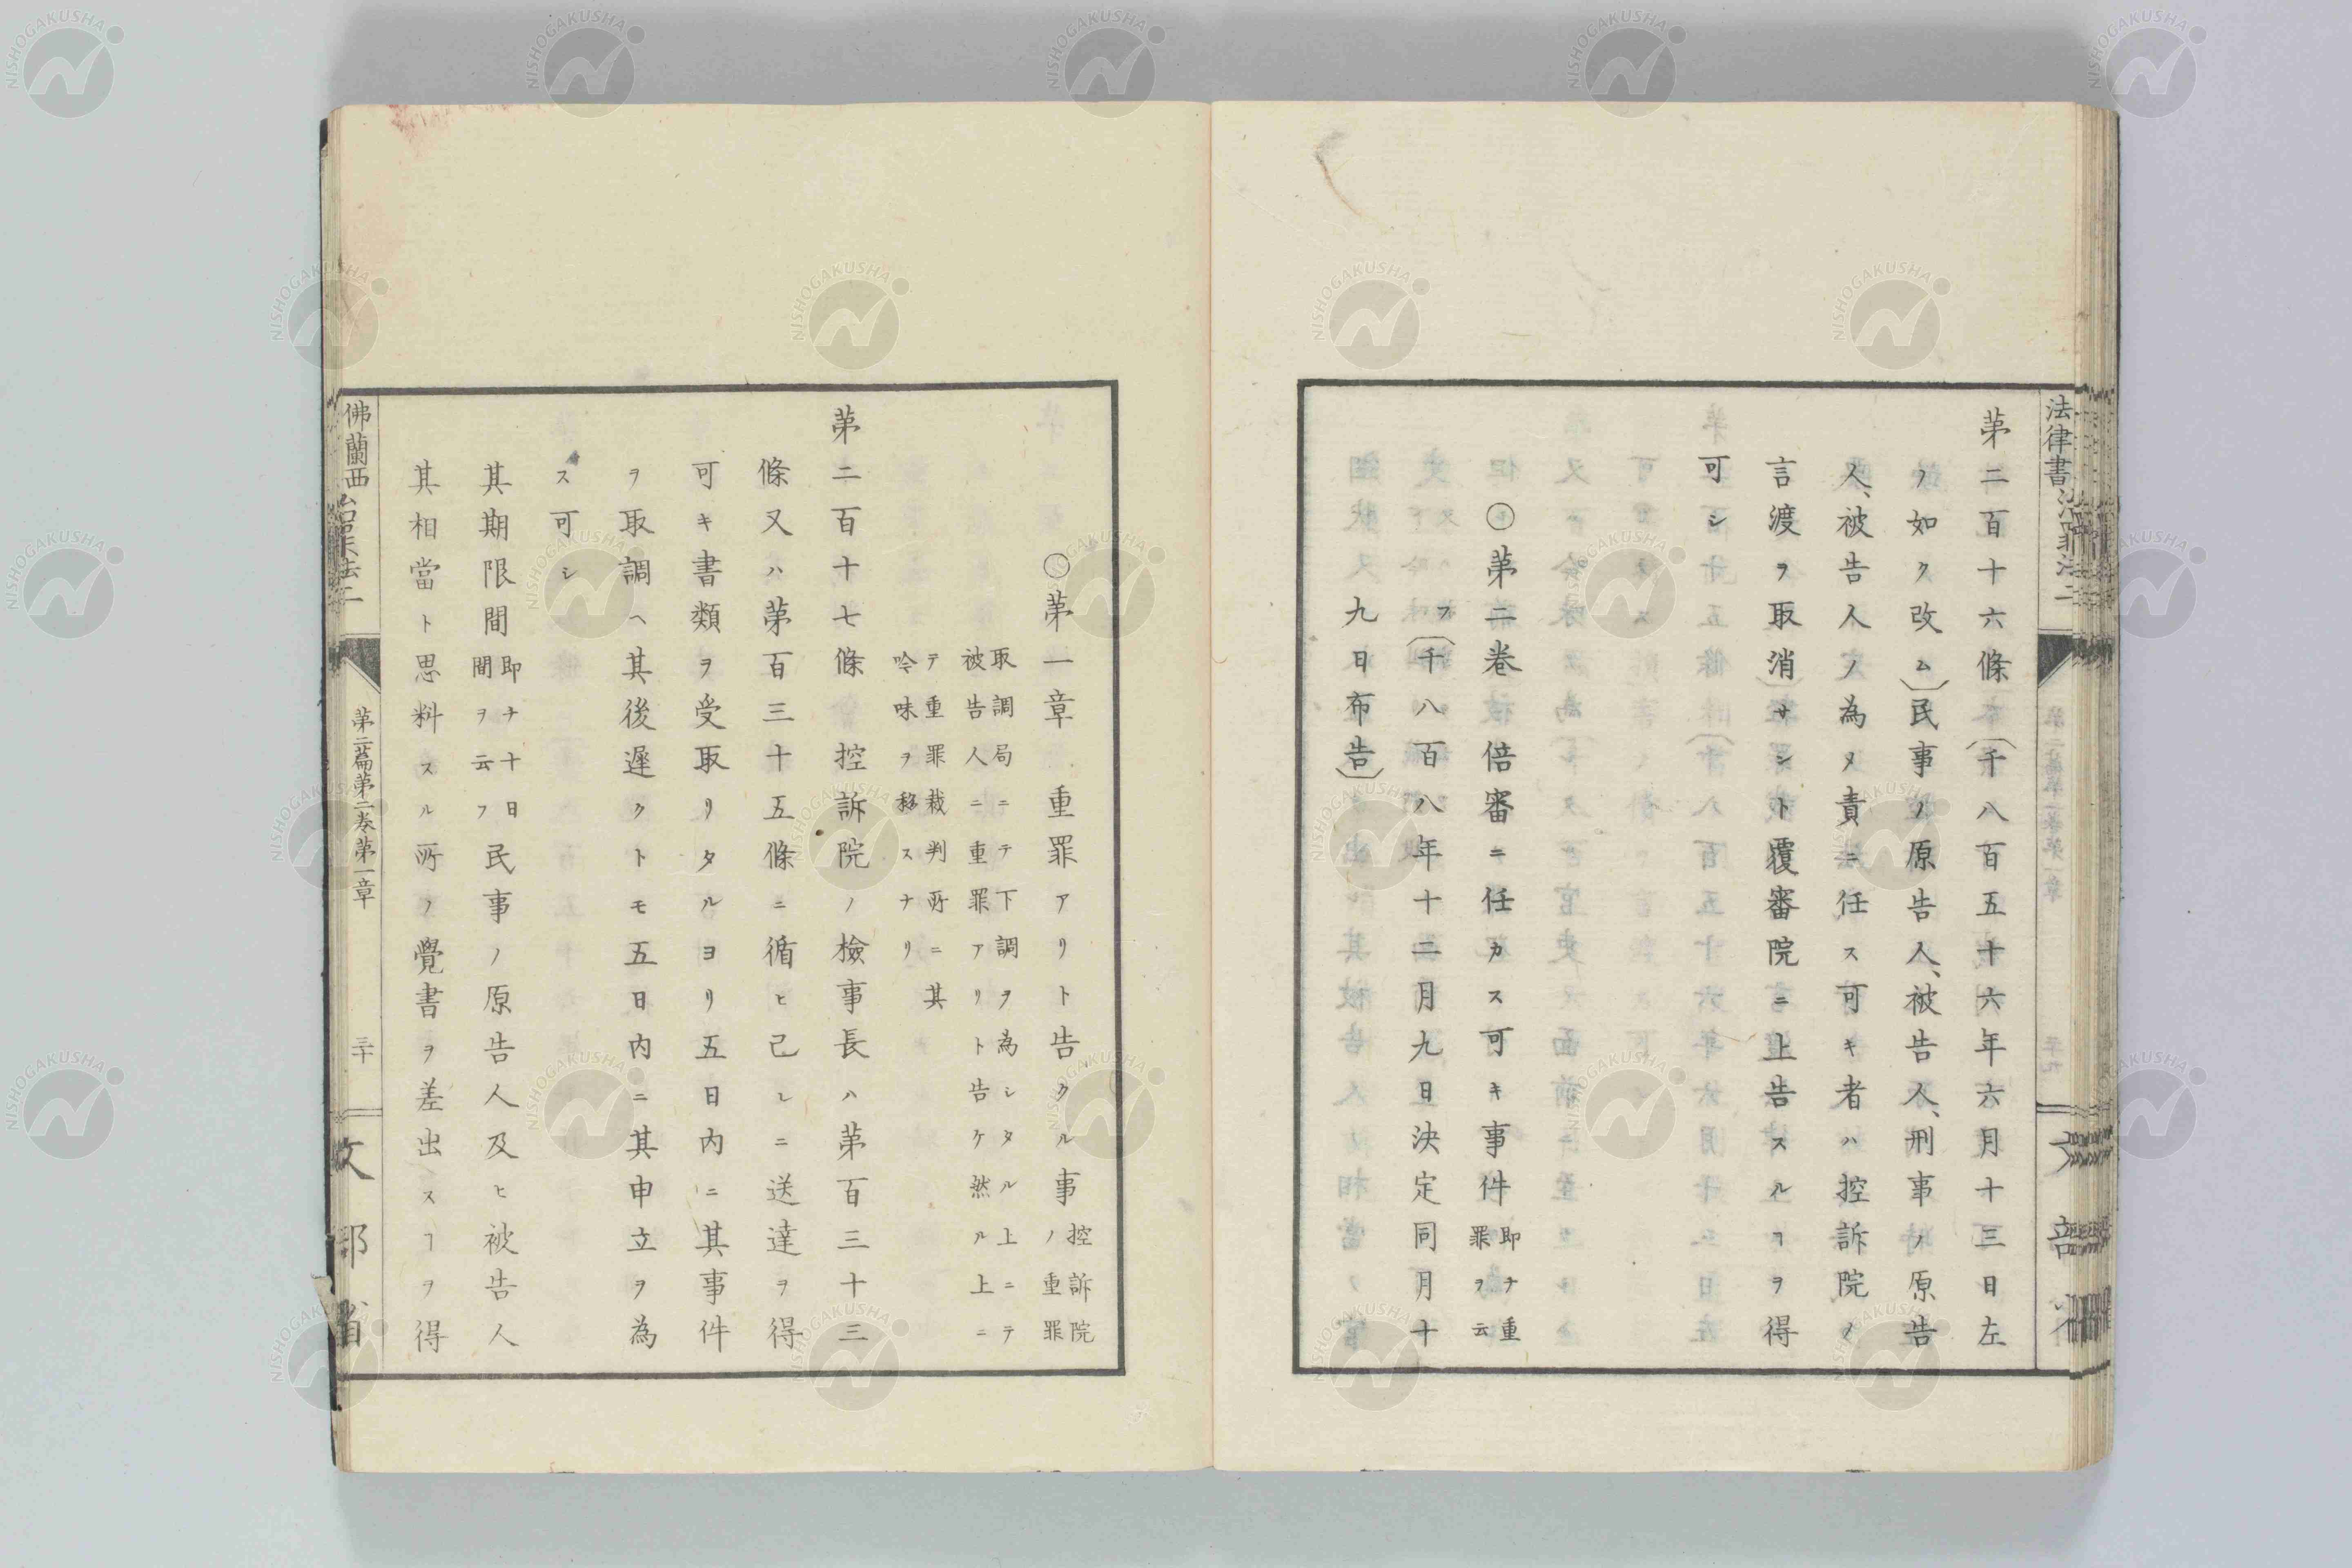 第二百十六條(千八百五十六年六月十三日左
ノ如ク改ム)民事ノ原告人、被告人、刑事ノ原告
人、被告人ノ為メ責ニ任ス可キ者ハ控訴院ノ
言渡ヲ取消サシト覆審院ニ上告スルヿヲ得
可シ
○第二巻 倍審ニ任カス可キ事件 即ナ重罪ヲ云
フ(千八百八年十二月九日決定同月十
九日布告)
○第一章 重罪アリト告クル事 控訴院ノ重罪
取調局ニテ下調ヲ為シタル上ニテ
被告人ニ重罪アリト告ケ然ル上ニ
テ重罪裁判所ニ其
吟味ヲ移スナリ
第二百十七條 控訴院ノ檢事長ハ第百三十三
條又ハ第百三十五條ニ循ヒ己レニ送達ヲ得
可キ書類ヲ受取リタルヨリ五日内ニ其事件
ヲ取調ヘ其後遲クトモ五日内ニ其申立ヲ為
ス可シ
其期限間 即ナ十日間ヲ云フ 民事ノ原告人及ヒ被告人
其相當ト思料スル所ノ覺書ヲ差出スヿヲ得
法律書
佛蘭西
第二篇第二巻第一章
三十
文部省
NISHOGAKUSHA